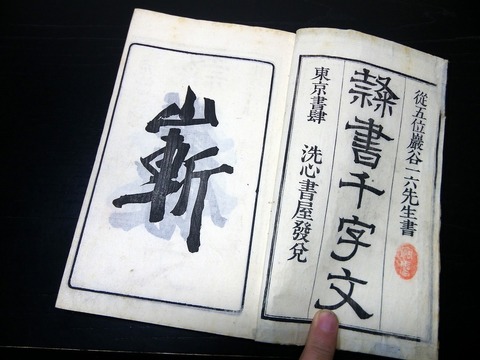 從五位巖谷一六先生書
隸書千字文
東京書肆 洗心書屋發兌
嶄